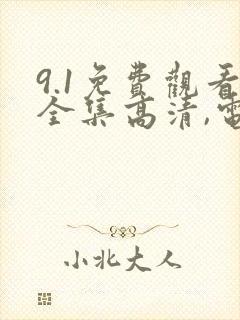 9.1免費觀看
全集高清,電
小北大人